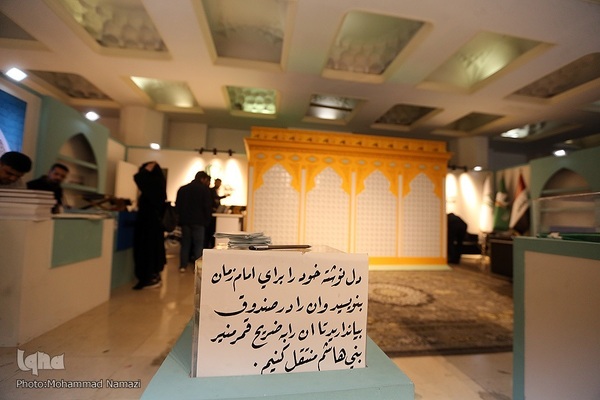 دل نوشته خود را براي امام زمان
بنويسيد وان را در صندوق
بياندازيد تا ان را به ضريح قمر منير
بني هاشم منتقل كنيم .
iqna
Photo:Mohammad Namazi